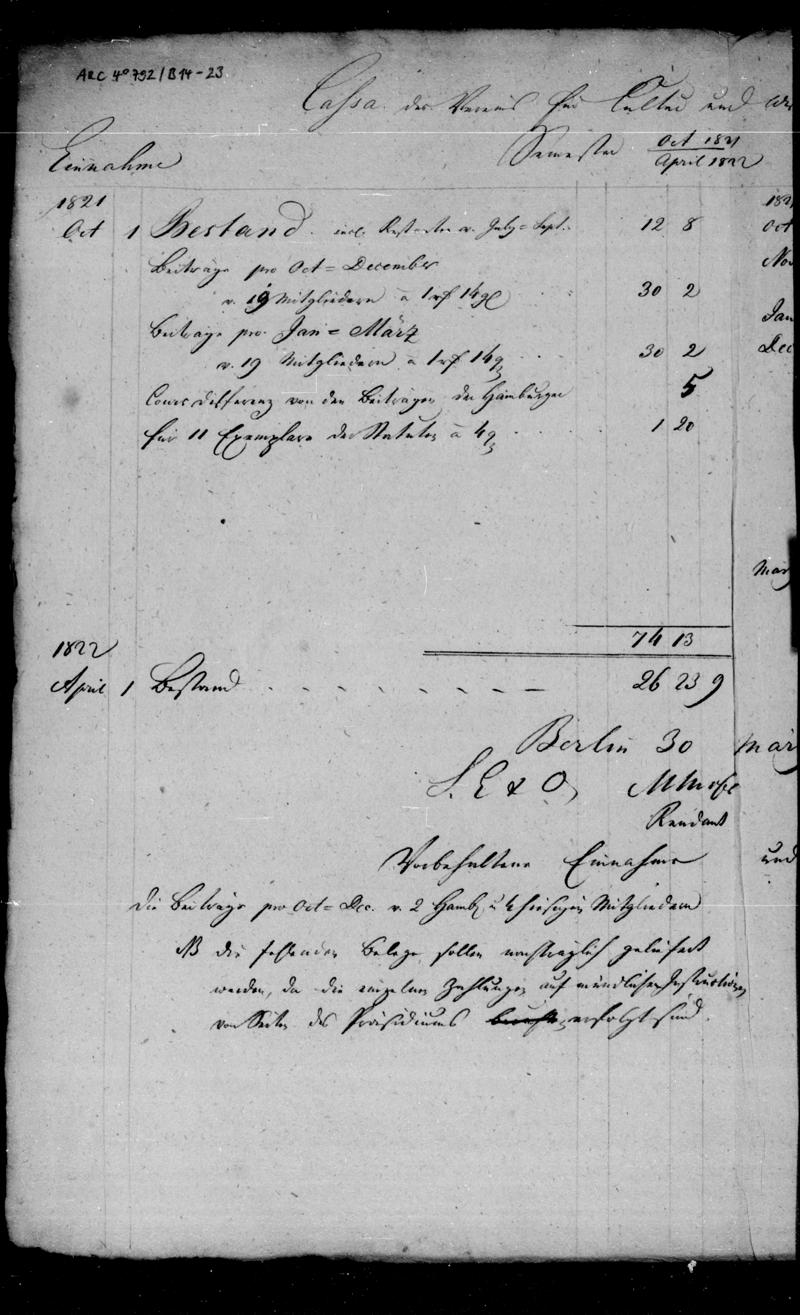 ARC 4° 792/B14-23
Cassa des Vereins für Cultur und
Einnahme
Semester Oct 1821
April 1822
1821
Oct 1 Bestand incl. v. July = Sept. 12 8
Beiträge pro Oct = December
v. 19 Mitgliedern a 1 rf 14 g 30 2
Beiträge pro Jan = März
v. 19 Mitgliedern a 1 rf 14 g 30 2
Cours differenz von den Beiträgen der Hamburger 5
für 11 Exemplare der Statuten à 4 g 1 20
74 13
1822
April 1 Bestand 26 23 9
Berlin 30 März
S. E & O
Rendant
Vorbehaltene Einnahme und
die Beiträge pro Oct = Dec. v. 2 Hamb u 4 hiesigen Mitgliedern
NB die fehlenden Belege sollen nachträglich geliefert
werden, da die einzelnen Zahlungen auf mündliche Instructionen
von Seiten des Präsidiums erfolgt sind.
1821
Oct
Nov
Jan
Dec
März